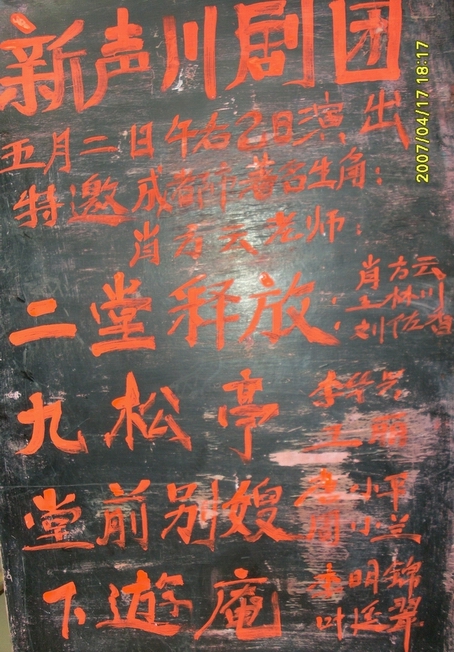 新声川剧团
2007/04/17 18:17
五月二日午右乙日演出
特邀成都市著名生角:
肖方云老师:
二堂释放
肖方云
王林川
刘佐香
九松亭
王明
堂前别嫂
小平
小兰
下遊庵
李明锦
叶医翠